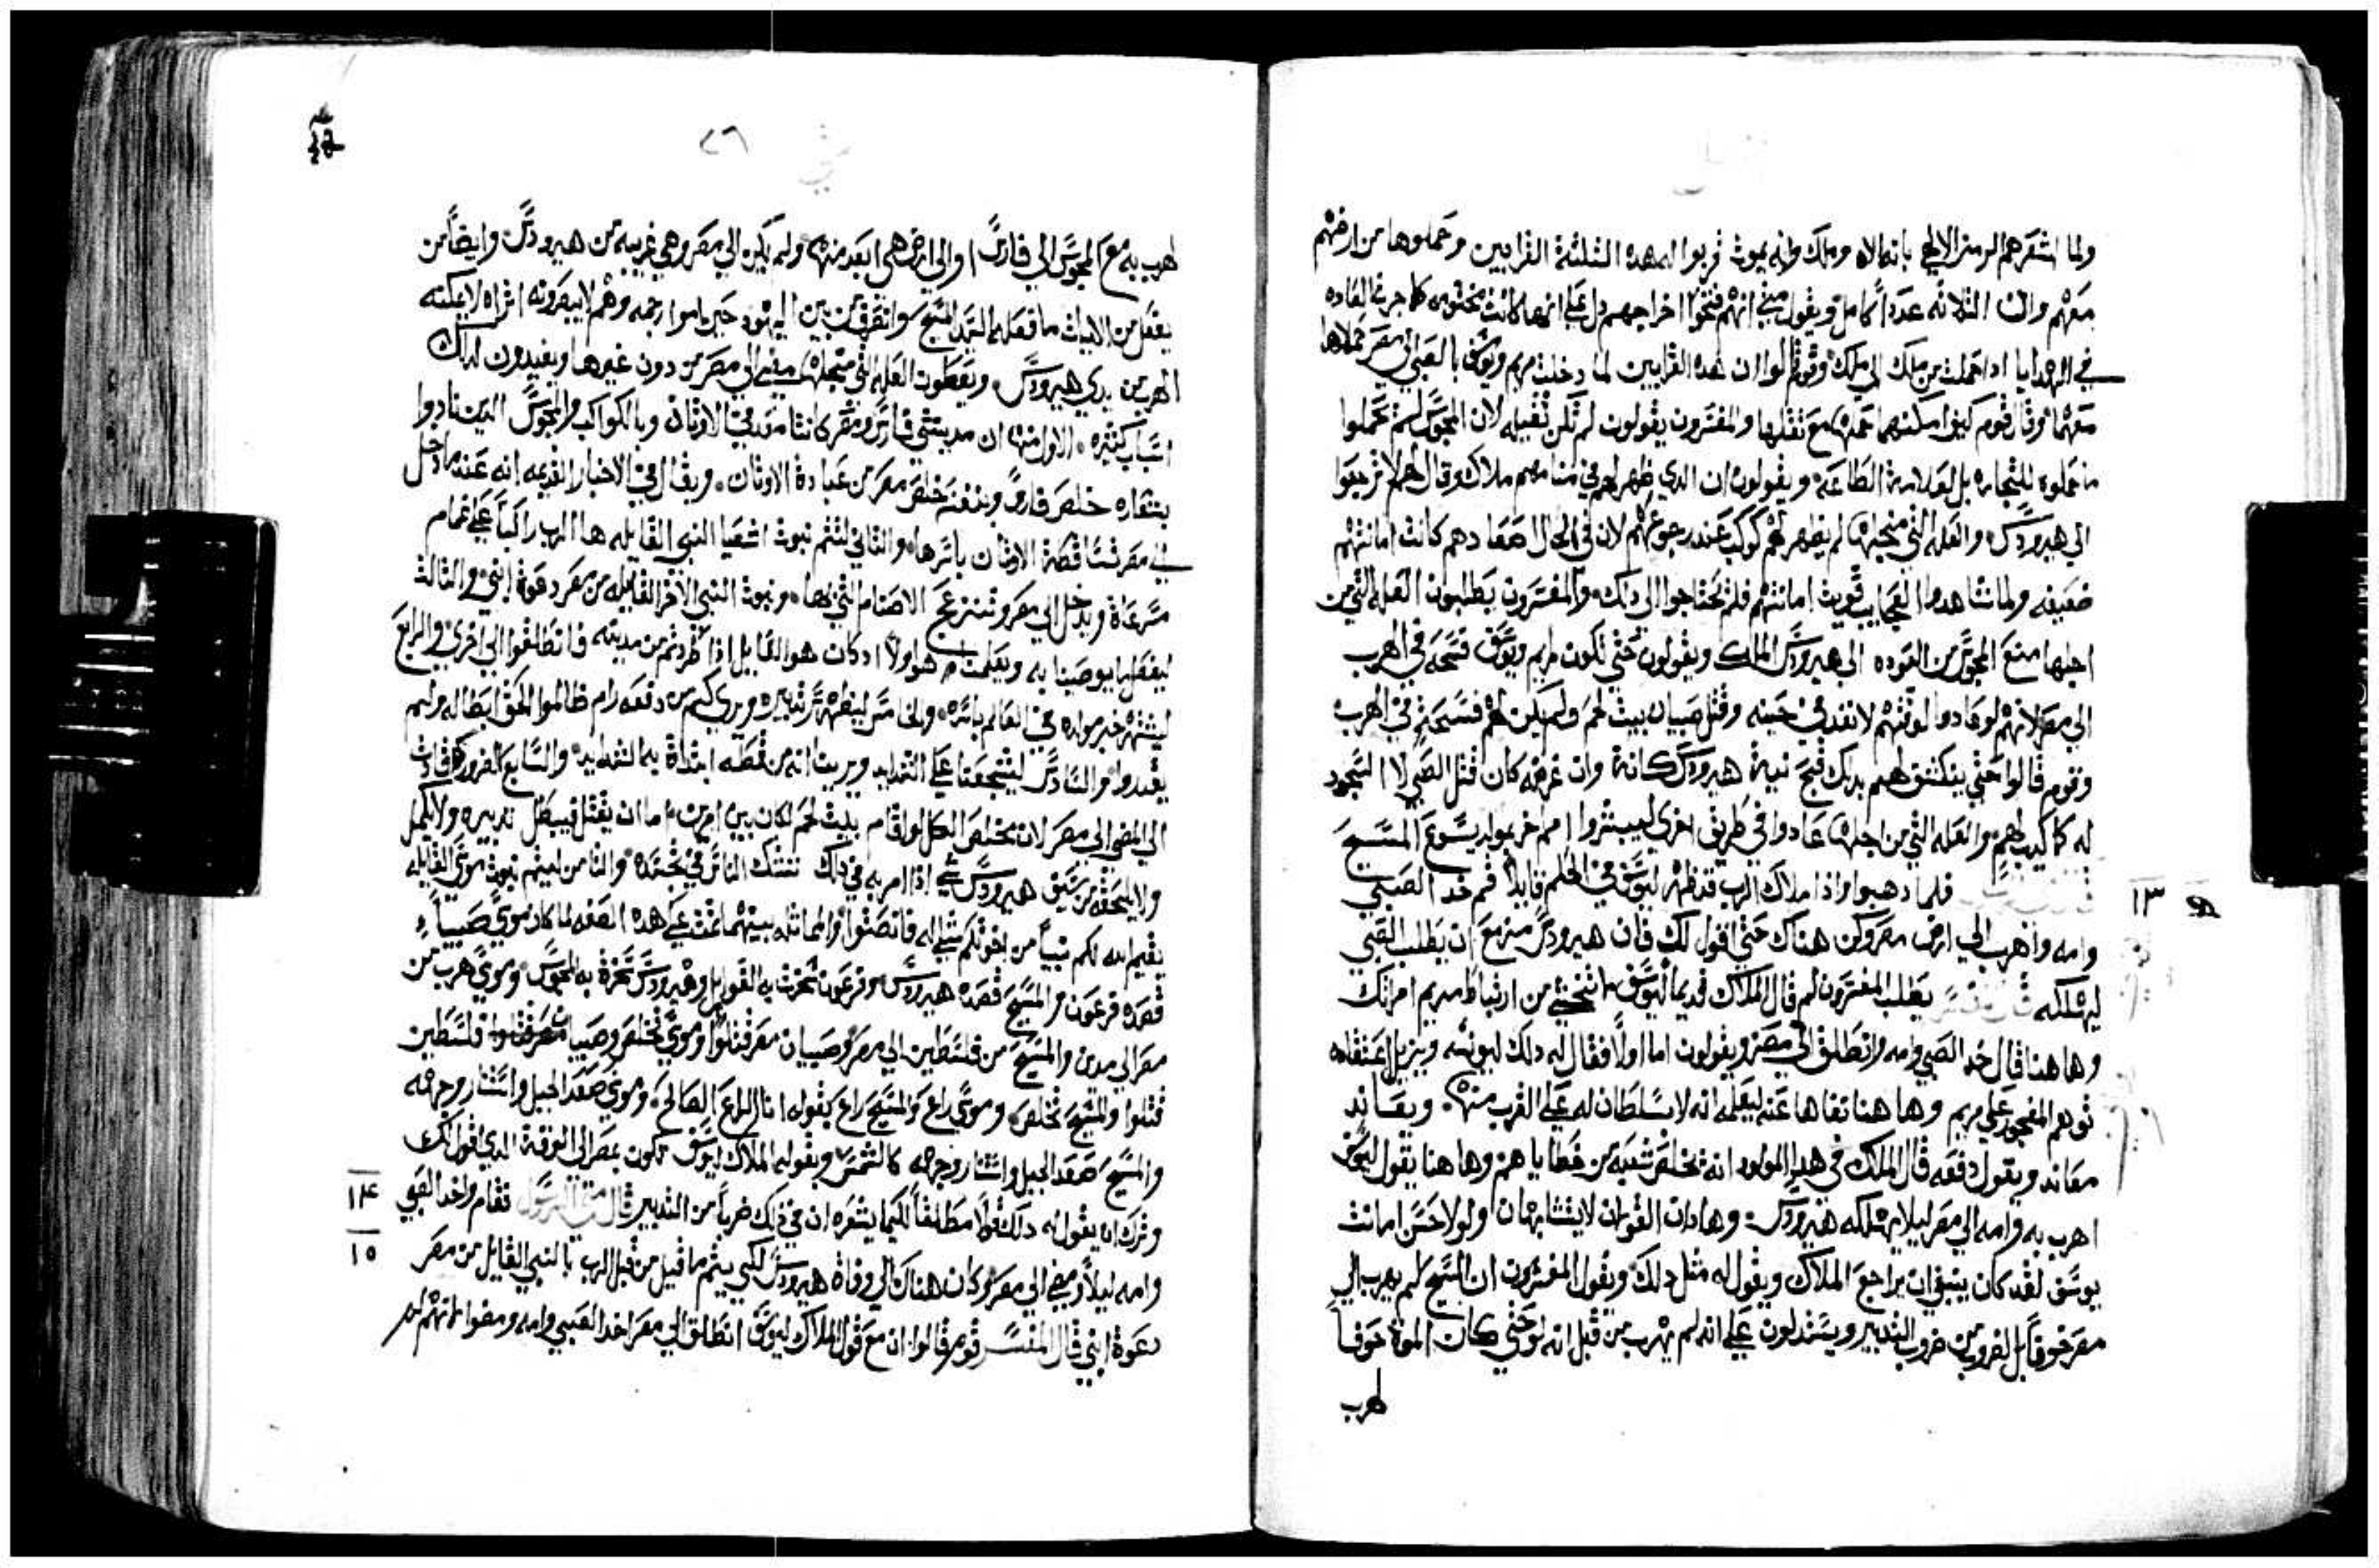 ولما اشعرهم الرمز الالهي بانه الاه وملك وانه يموت قربوا له هده الثلثة القرابين وحملوها من ارضهم
معهم وان الثلاثه عددا كامل ويقول متي انهم فتحوا اخراجهم دل علي انها كانت مختومه كما جرت العاده
في الهدايا ادا حملت من ملك الي ملك وقوم قالوا ان هده القرابين لما دخلت مريم ويوسف بالصبي الي مصر حملاها
معهما وقال قوم كيف امكنهما حملها مع ثقلها والمفسرون يقولون لم تكن ثقيله لان المجوس لم تحملوا
ما حملوه للتجاره بل لعلامة الطاعه ويقولون ان الدي ظهر لهم في منامهم ملاك وقال لهم لا ترجعوا
الي هيرودس والعله التي من اجلها لم يظهر لهم كوكب عند رجوعهم لان في الحال اصعادهم كانت امانتهم
ضعيفه ولما شاهدوا العجايب قويت امانتهم فلم يحتاجوا الي دلك والمفسرون يطلبون العله التي من
اجلها منع المجوس من العوده الي هيرودس الملك ويقولون حتي تكون لمريم ويوسف فسحه في الهرب
الي مصر لانهم لو عادوا لوقتهم لانفد في حينه وقتل صبيان بيت لحم ولم يكن لهم فسحة في الهرب
وقوم قالوا حتي ينكشف لهم بدلك قبح نية هيرودس كانة وان غرضه كان قتل الصبي لا السجود
له كما كدب لهم والعله التي من اجلها عادوا في طريق اخري ليبشروا امم اخر بمولد يسوع المسيح
فلما دهبوا وادا ملاك الرب قد ظهر ليوسف في الحلم قايلا قم خد الصبي
١٣
وامه واهرب الي ارض مصر وكن هناك حتي اقول لك فان هيرودس مزمع ان يطلب الصبي
ليهلكه يطلب المفسرون لم قال الملاك قديما ليوسف لا تختشي من ارتباط مريم امراتك
وهاهنا قال خد الصبي وامه وانطلق الي مصر ويقولون اما اولا فقال له دلك ليونسه ويزيل اعتقاده
توهم الفجور علي مريم وهاهنا نفاها عنه ليعلمه انه لا سلطان له علي القرب منها ويعاند
معاند ويقول دفعه قال الملك في هدا المولود انه يخلص شعبه من خطاياهم وهاهنا يقول ليوسف
اهرب به وامه الي مصر ليلا يهلكه هيرودس وهادان القولان لا يتشابهان ولولا حسن امانت
يوسف لقد كان ينبغي ان يراجع الملاك ويقول له مثل دلك ويقول المفسرون ان المسيح لم يهرب الي
مصر خوفا بل لضروب من ضروب التدبير ويستدلون علي انه لم يهرب من قبل انه لو حتي كان الموة خوفا
لهرب
٢٦
لهرب به مع المجوس الي فارس او الي ارض هي ابعد منها ولم يكن الي مصر وهي قريبه من هيرودس وايضا من
يعقل من الايات ما فعله السيد المسيح وانصرف من بين اليهود حين راموا رجمه وهم لا يبصرونه اتراه لا يمكنه
الهرب من يدي هيرودس ويعطون العله التي من اجلها مضي الي مصر من دون غيرها ويفيدون لدلك
اسباب كثيره الاول منها ان مدينتي فارس ومصر كانتا معدني الاوثان وبالكواكب والمجوس الدين نادوا
بنقاره خلص فارس وبنفسه خلص مصر من عبادة الاوثان ويقال في الاخبار القديمه انه عند ما دخل
الي مصر تساقطة الاوثان باسرها والثاني لتتم نبوت اشعيا النبي القايله ها الرب راكبا علي غمام
مسرعاة ويدخل الي مصر وتنزعج الاصنام التي بها ونبوت النبي الاخر القايله من مصر دعوة ابني والثالث
ليفعل ما يوصينا به ويعلمنا هو اولا ادكان هو القايل ادا طردتم من مدينه فانطلقوا الي اخري والرابع
ليشتهر خبر مولده في العالم باسره والخامس ليظهر تدبيره ويري كم من دفعه رام ظالموا الحق ابطاله ولم
يقدروا والسادس ليشجعنا علي الشدايد ويريت انه من قطه ابتداة به الشدايد والسابع الضرورة قادت
الي المضي الي مصر لان مخلص الكل لو اقام ببيت لحم لكان بين امرين اما ان يقتل فيبطل تدبيره ولا يكمل
ولا يلحقه من سيف هيرودس شي ادا امر به في دلك تشك الناس في تجسده والثامن ليتم نبوت موسي القايله
يقيم الله لكم نبيا من اخوتكم مثلي له فانصتوا والمماثله بينهما تمت علي هده الصفه لما كان موسي صبيا
قصده فرعون والمسيح قصده هيرودس وفرعون سخرت به القوابل وهيرودس سخرة به المجوس وموسي هرب من
مصر الي مدين والمسيح من فلسطين الي مصر وصبيان مصر قتلوا وموسي تخلص وصبيان فلسطين
قتلوا والمسيح تخلص وموسي راع والمسيح راع كقوله انا الراعي الصالح وموسي صعد الجبل واستنار وجهه
والمسيح صعد الجبل واستنار وجهه كالشمس ويقوله الملاك ليوسف تكون بمصر الي الوقت الدي اقول لك
وترك ان يقول له دلك قولا مطلقا لكيما يشعره ان في دلك ضربا من التدبير قال متي الرسول فقام واخد الصبي
١٤
وامه ليلا ومضي الي مصر وكان هناك الي وفاة هيرودس لكي يتم ما قيل من قبل الرب بالنبي القايل من مصر
١٥
دعوة ابني قال المفسر قوم قالوا ان مع قول الملاك ليوسف انطلق الي مصر اخد الصبي وامه ومضوا